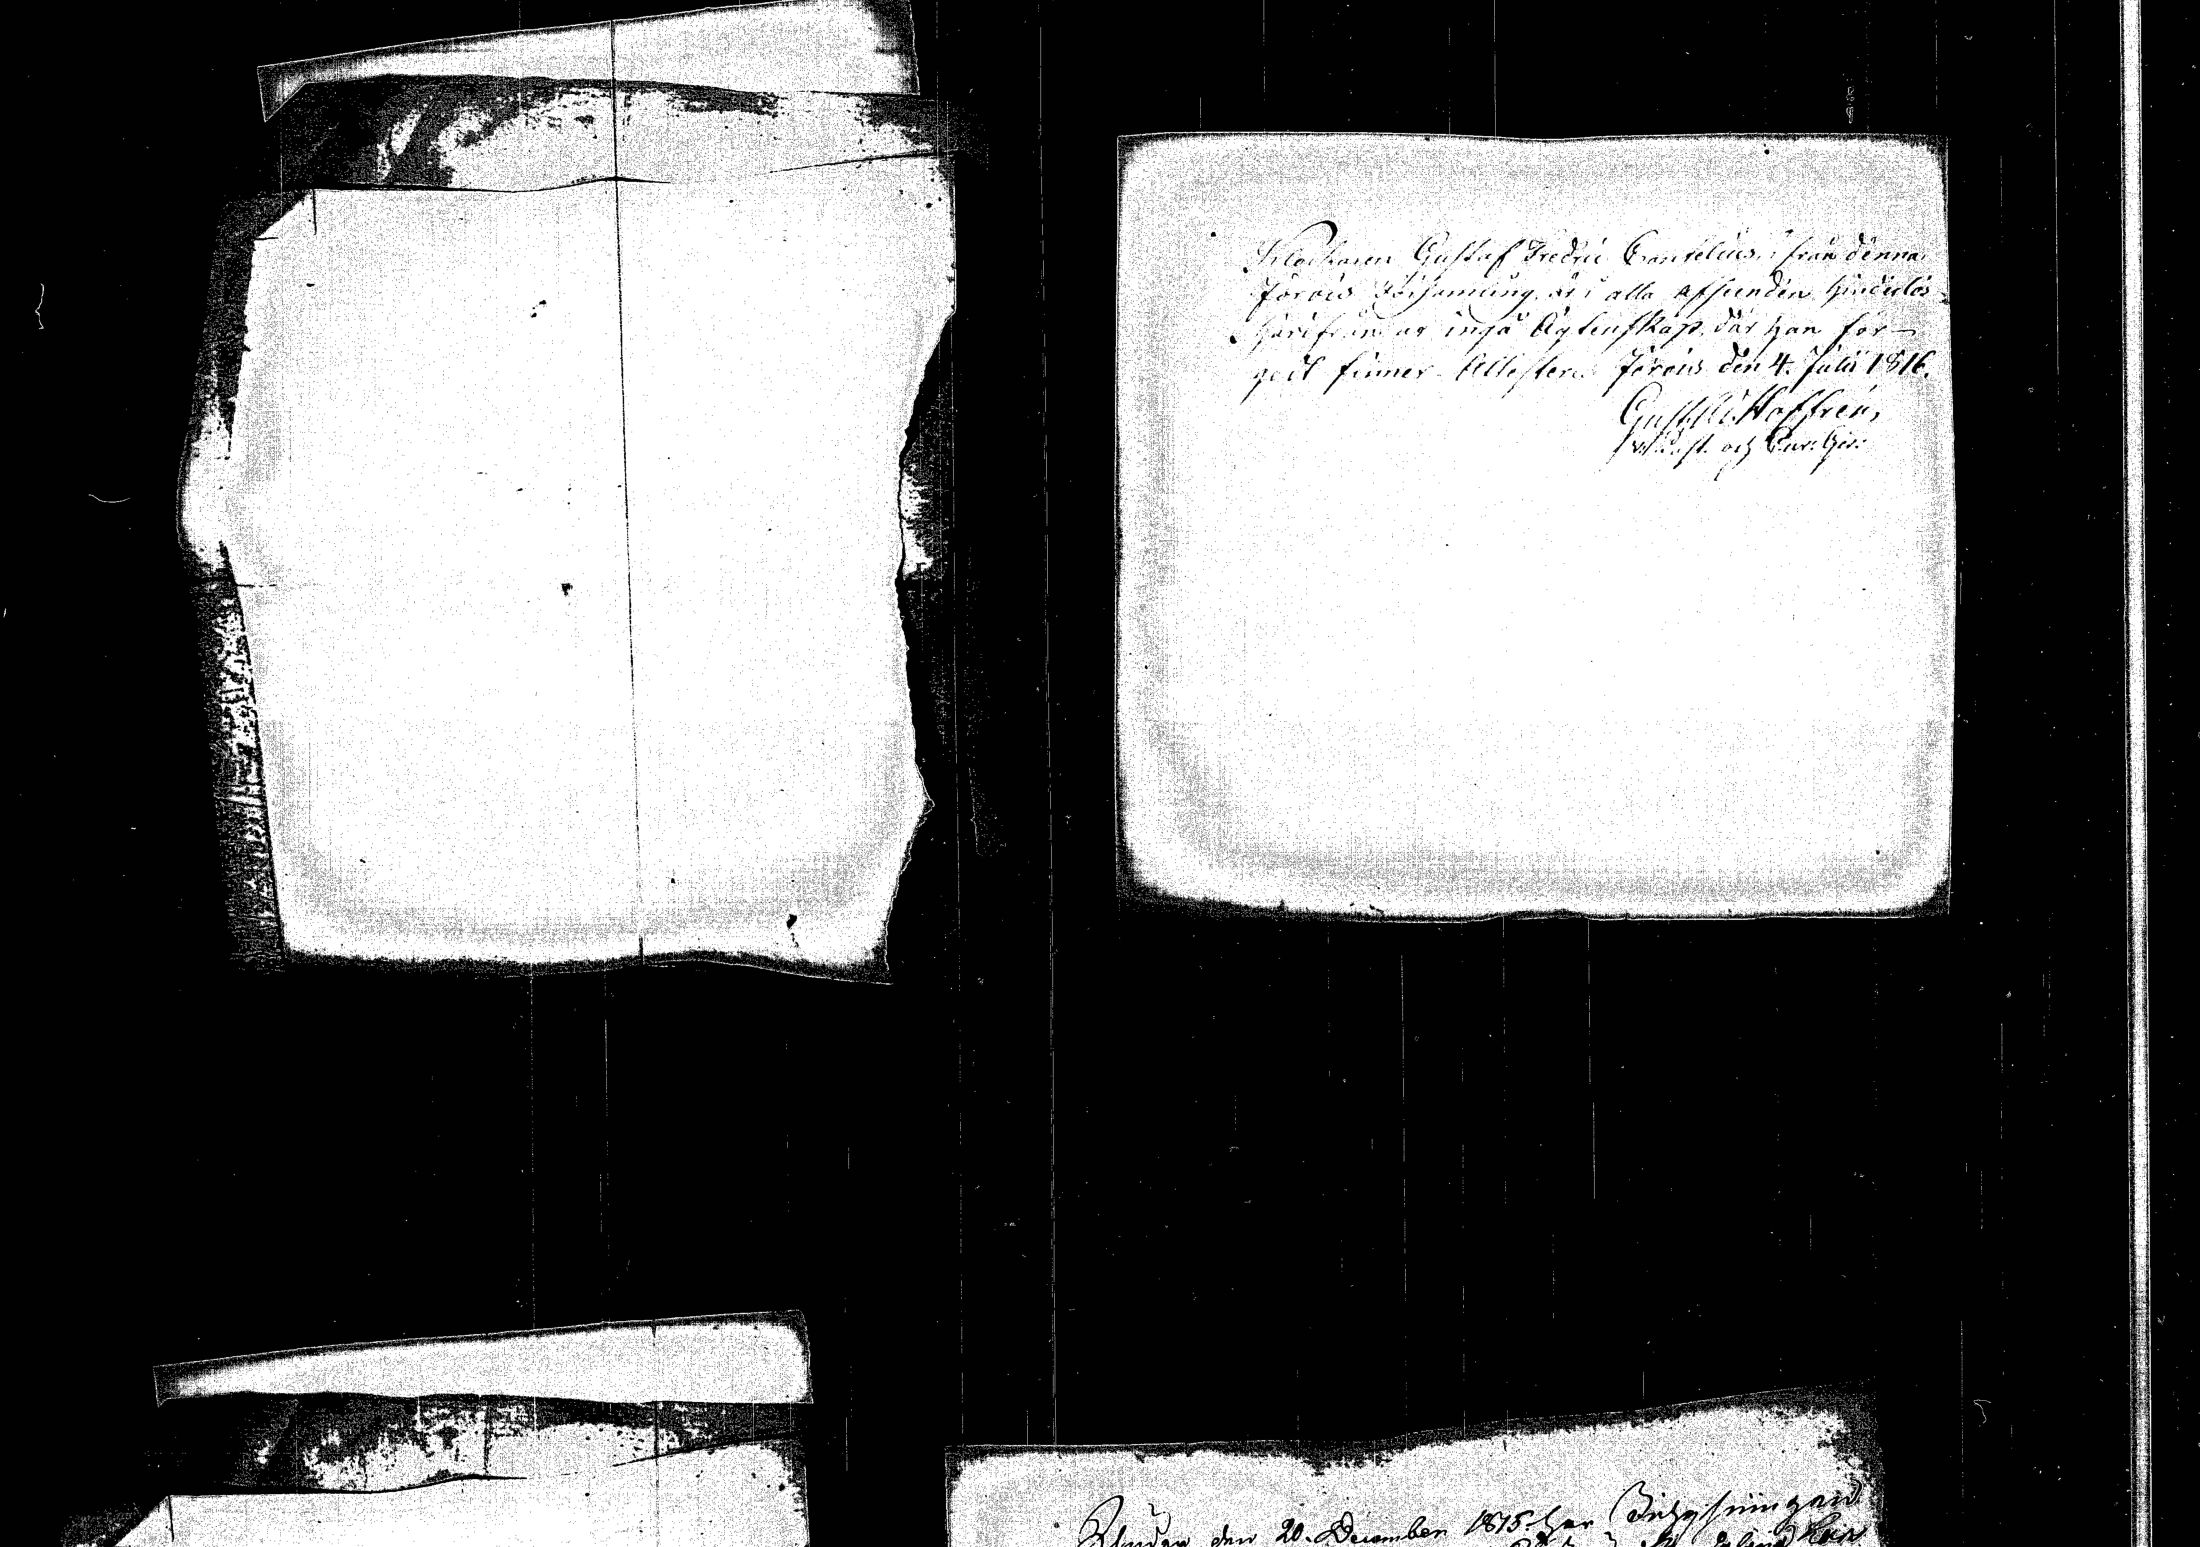 Klockaren Gustaf Fredric Cantelius, ifrån denna
Jorois Församling, är i alla afseenden hinderlös
härifrån at ingå Ägtenskap, där han for-
godt finner. Attesteras Jorois den 4. Julii 1816.
Gust. Hoffrén,
v. Past. och
den 20. December 1815. har